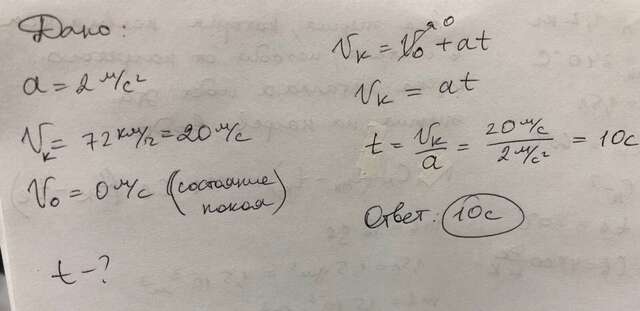 Дано:
a = 2 м/с²
Vк = 72 км/ч = 20 м/с
V₀ = 0 м/с (состояние покоя)
t - ?
Vк = V₀ + at
Vк = at
t = Vк/a = 20 м/с / 2 м/с² = 10с
Ответ: 10с